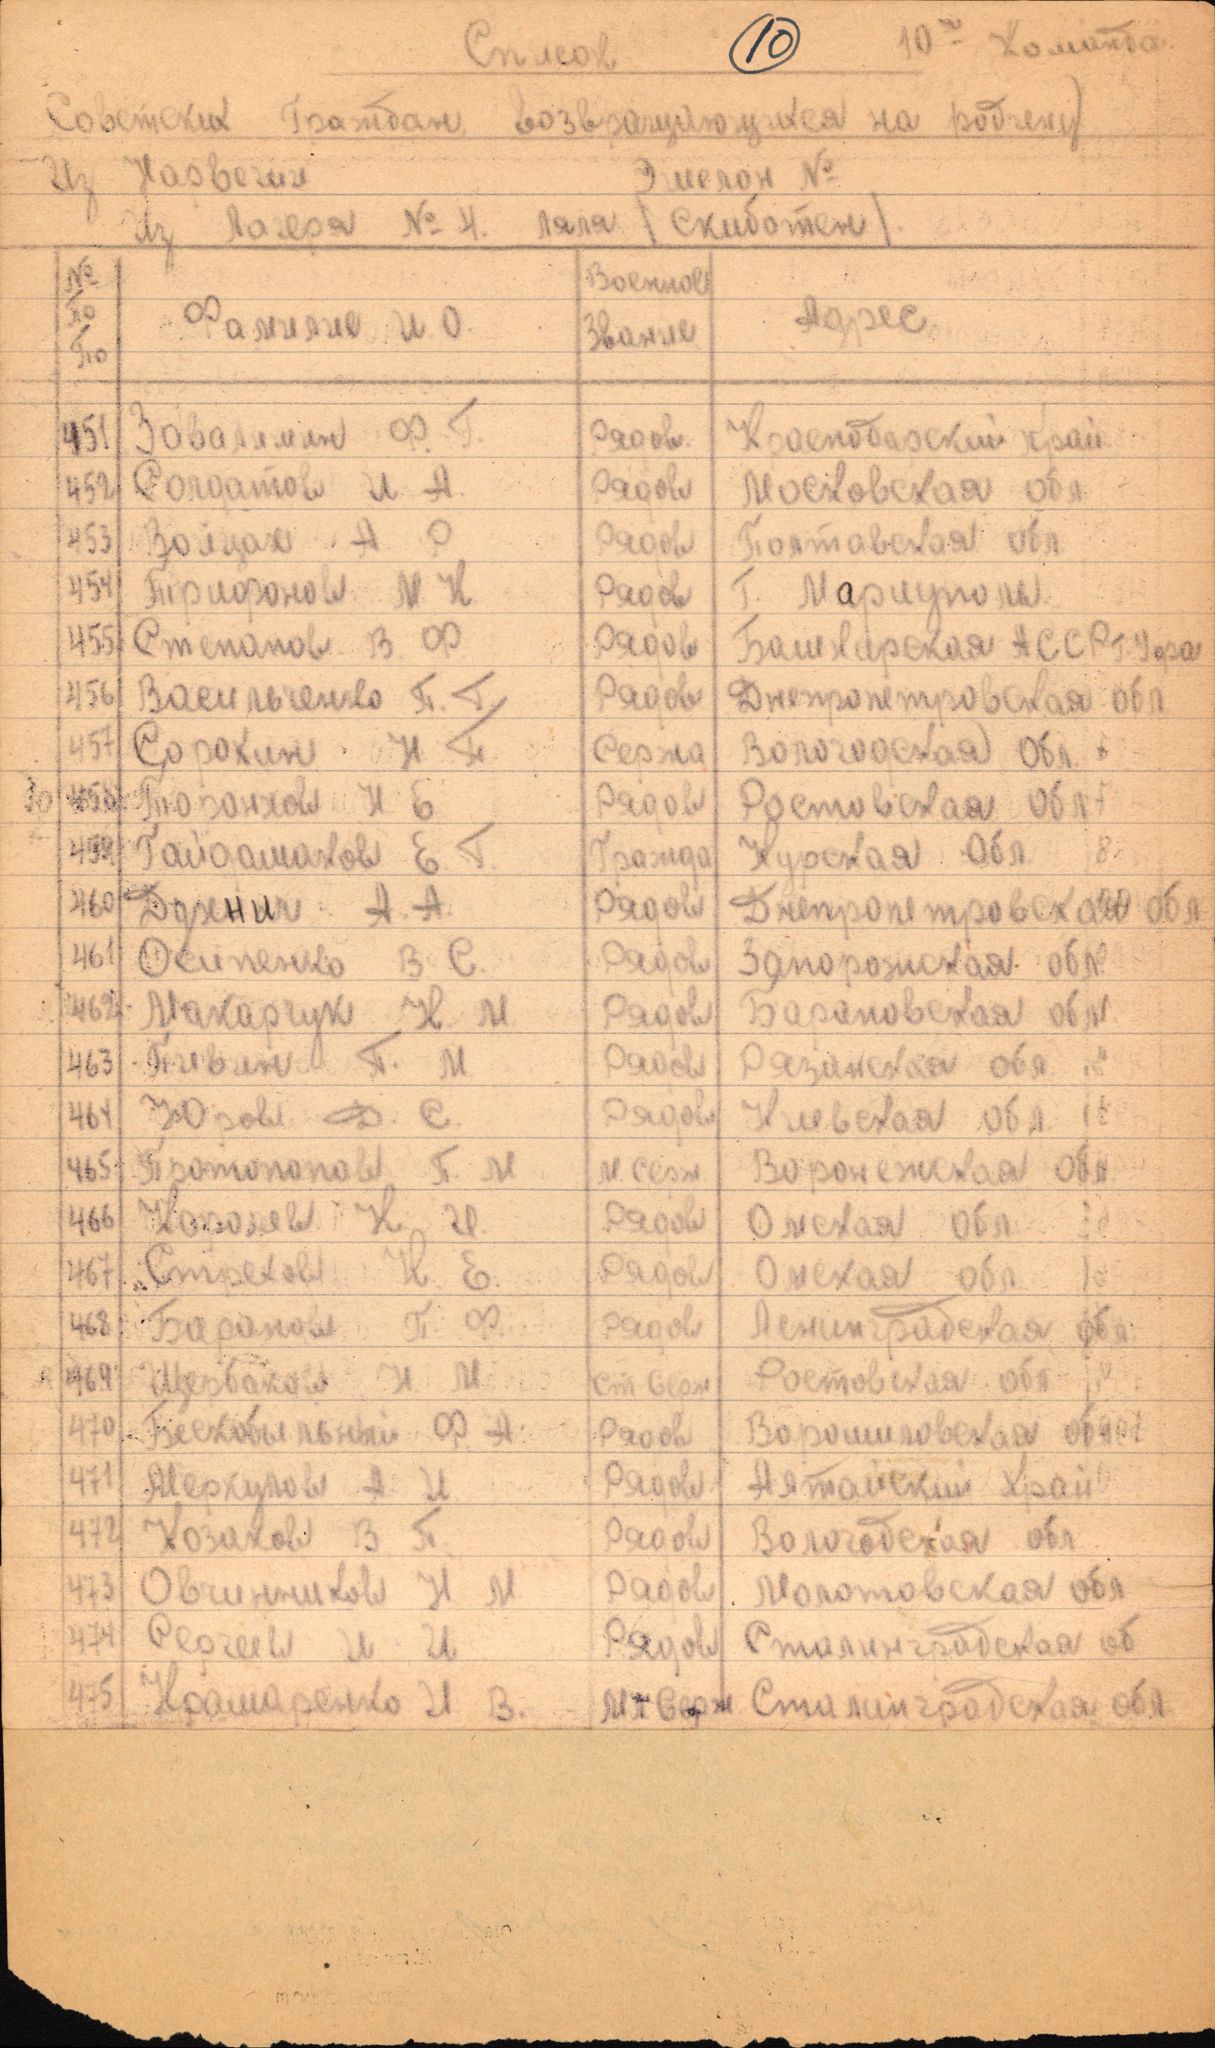 Список 10 10ая Команда
Советских Граждан, возвращающихся на родину
Из Нарвегии Эшелон №
Из Лагеря № 4. Ляля (Скиботен).
№ по по Фамилие И.О. Военное Звание Адрес
451 Завалишин Ф.Г. Рядов. Краснодарский край
452 Солдатов И А. Рядов Московская обл
453 Войцах А Р Рядов Полтавская обл
454 Трифонов М К Рядов Г. Мариуполь
455 Степанов В Ф Рядов Башкирская АССР г. Уфа
456 Васильченко Г.Г. Рядов Днепропетровская обл
457 Сорокин Н П. Сержа Вологодская обл.
458 Н Е Рядов Ростовская обл 7
459 Гайдамаков Е Г. Гражда Курская Обл 8
460 А.А. Рядов Днепропетровская обл
461 Осипенко В С. Рядов Запорожская обл
462 Макарчук Н. М Рядов Барановская обл
463 Пивин П. М Рядов Рязанская обл
464 Юров Д. С. Рядов Киевская обл
465 Протопопов П. М М. Серж Воронежская обл
466 Королев К И. Рядов Омская обл
467 Стрехов Н. Е. Рядов Омская обл
468 Баранов П. Ф. Рядов Ленинградская обл
469 Щербаков Н М Ст Серж Ростовская обл
470 Бескобыльный Ф А. Рядов Ворошиловская обл
471 Меркулов А И Рядов Алтайский Край
472 Козаков В П. Рядов Вологодская обл
473 Овчинников Н М Рядов Молотовская обл
474 Сергеев И И Рядов Сталинградская об
475 Крамаренко И В. Мл Серж Сталинградская обл